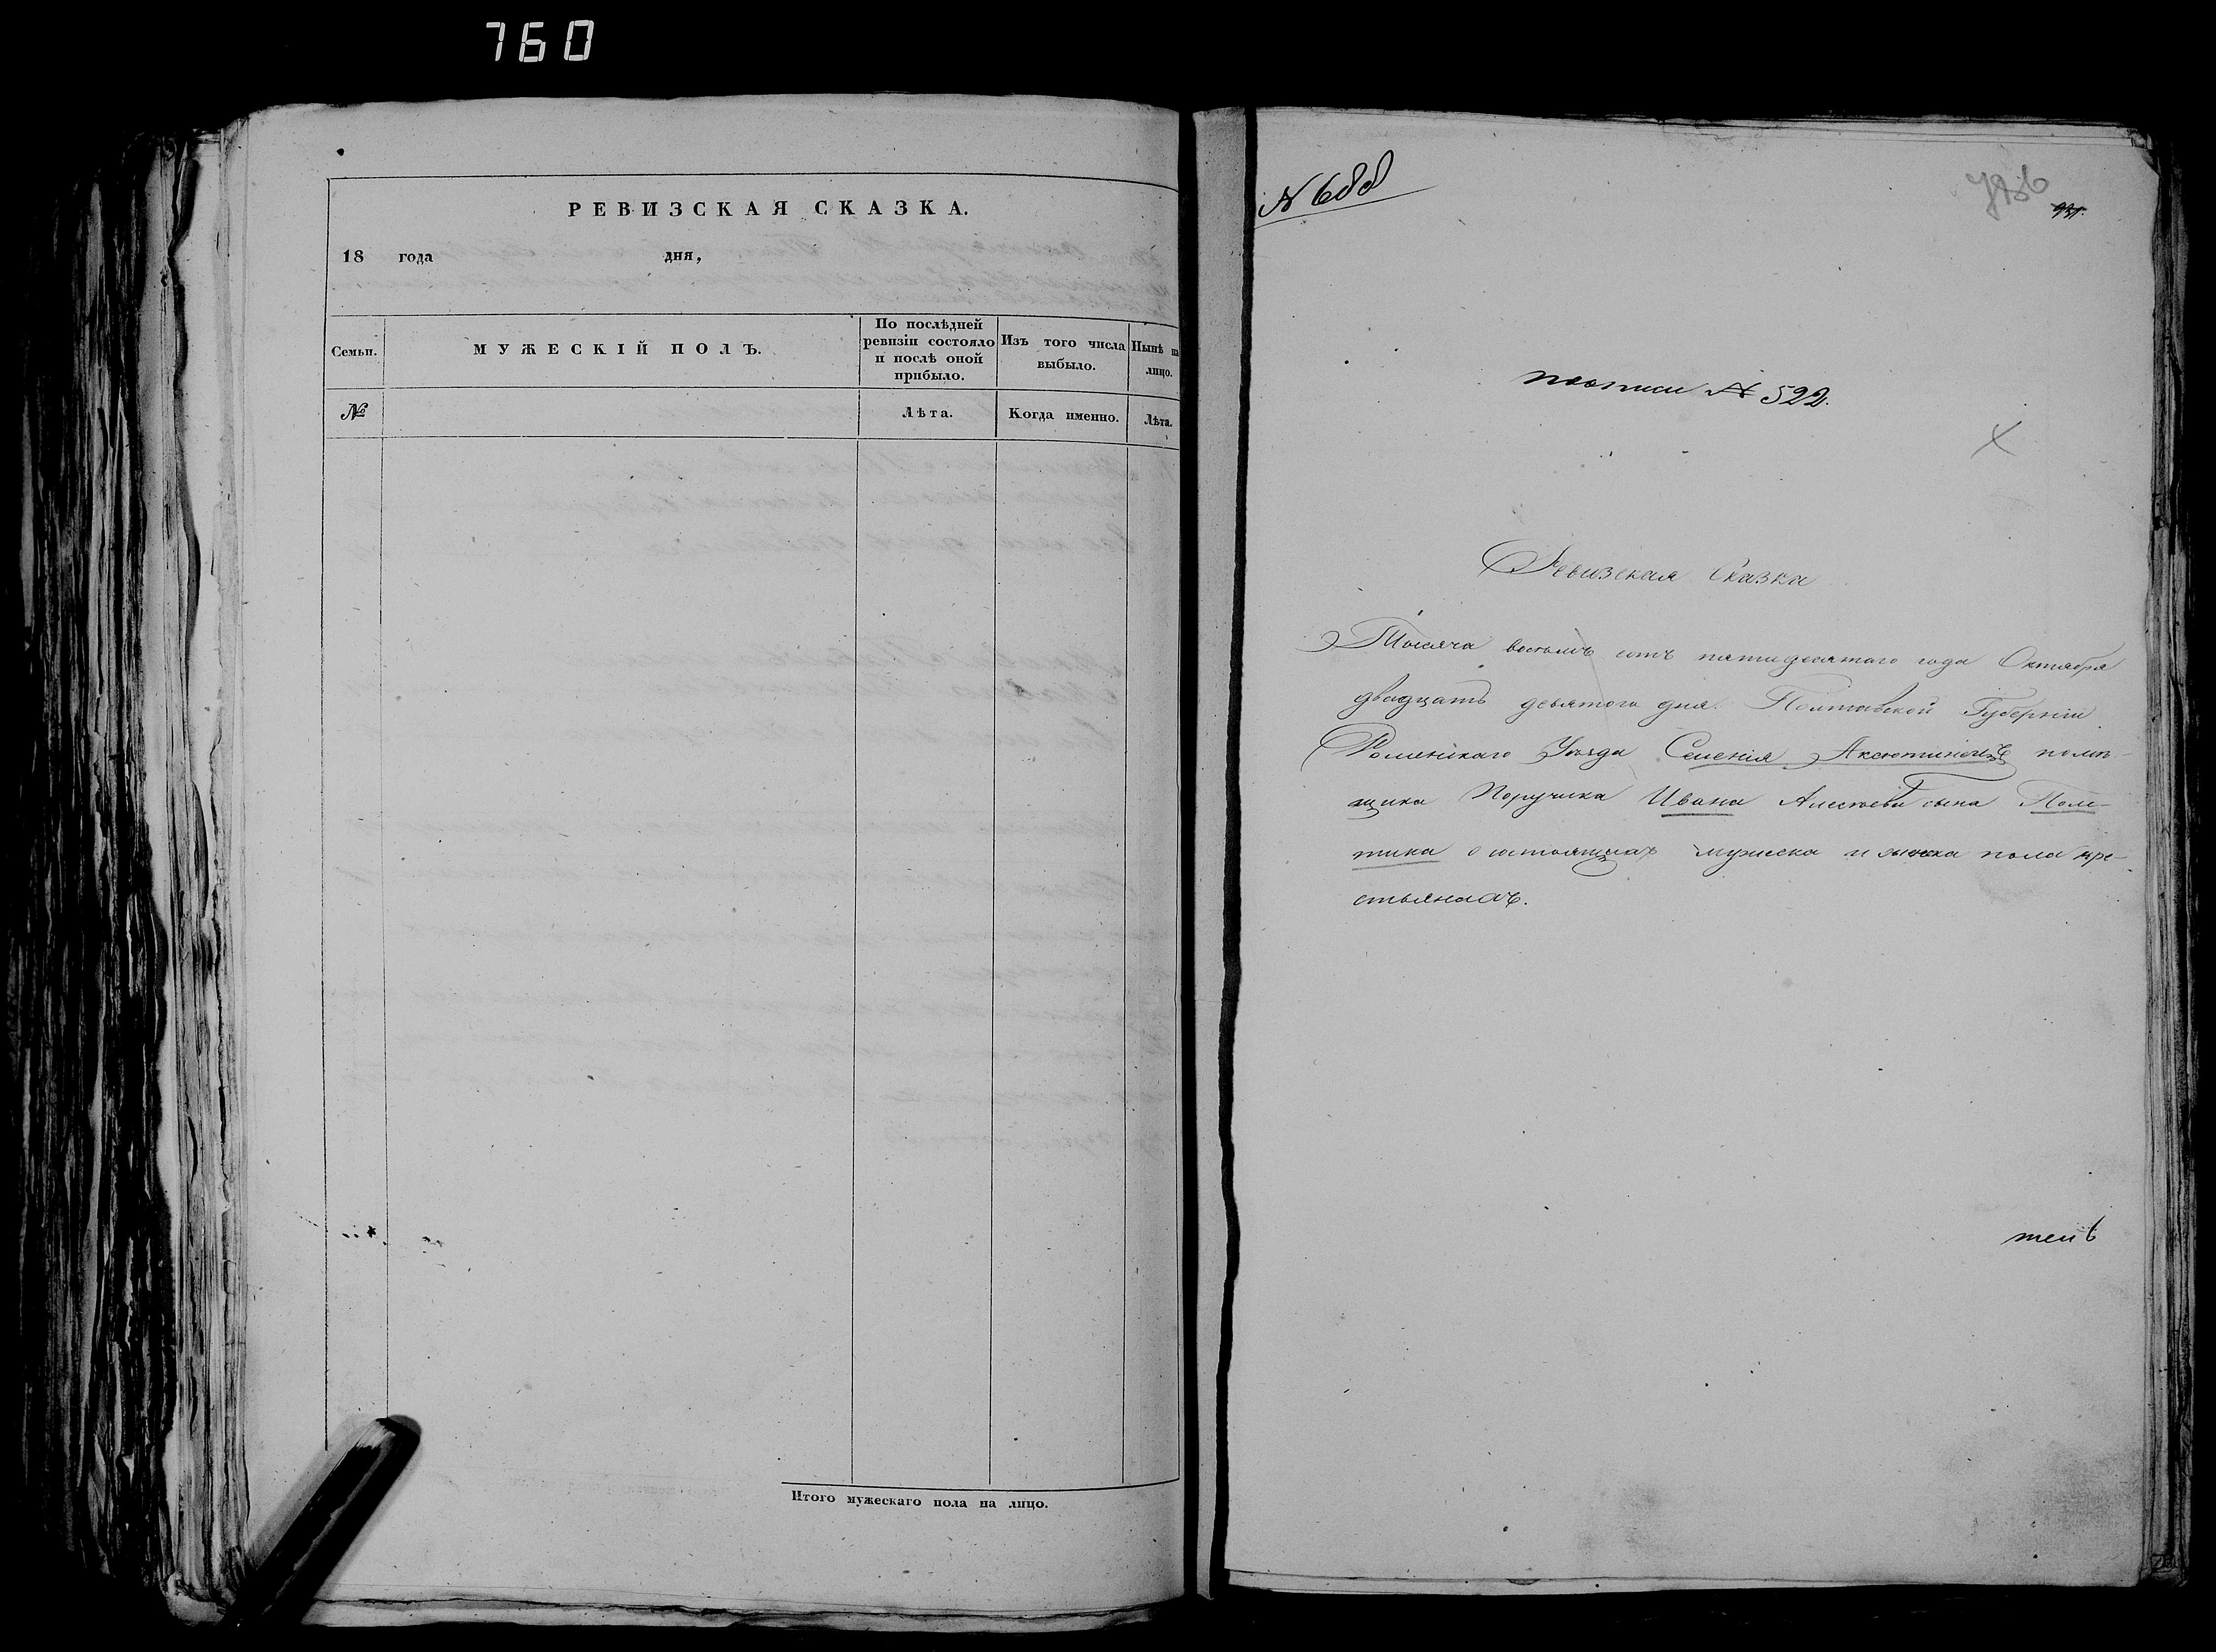 760
РЕВИЗСКАЯ СКАЗКА.
18 года дня,
Семьи. МУЖЕСКІЙ ПОЛЪ. По послѣдней ревизіи состояло и послѣ оной прибыло. Изъ того числа выбыло. Нынѣ на лицо.
№ Лѣта. Когда именно. Лѣта.
Итого мужескаго пола на лицо.
N 688
пописи N 522.
Ревизская Сказка
Тысяча восемь сотъ пятидесятаго года Октября
двадцать девятого дня. Полтавской Губерніи
Роменскаго Уѣзда Селенія Аксютинецъ помѣ-
щика Поручика Ивана Алексѣева сына Поле-
тика о состоящихъ мужеска и женска пола кре-
стьянахъ.